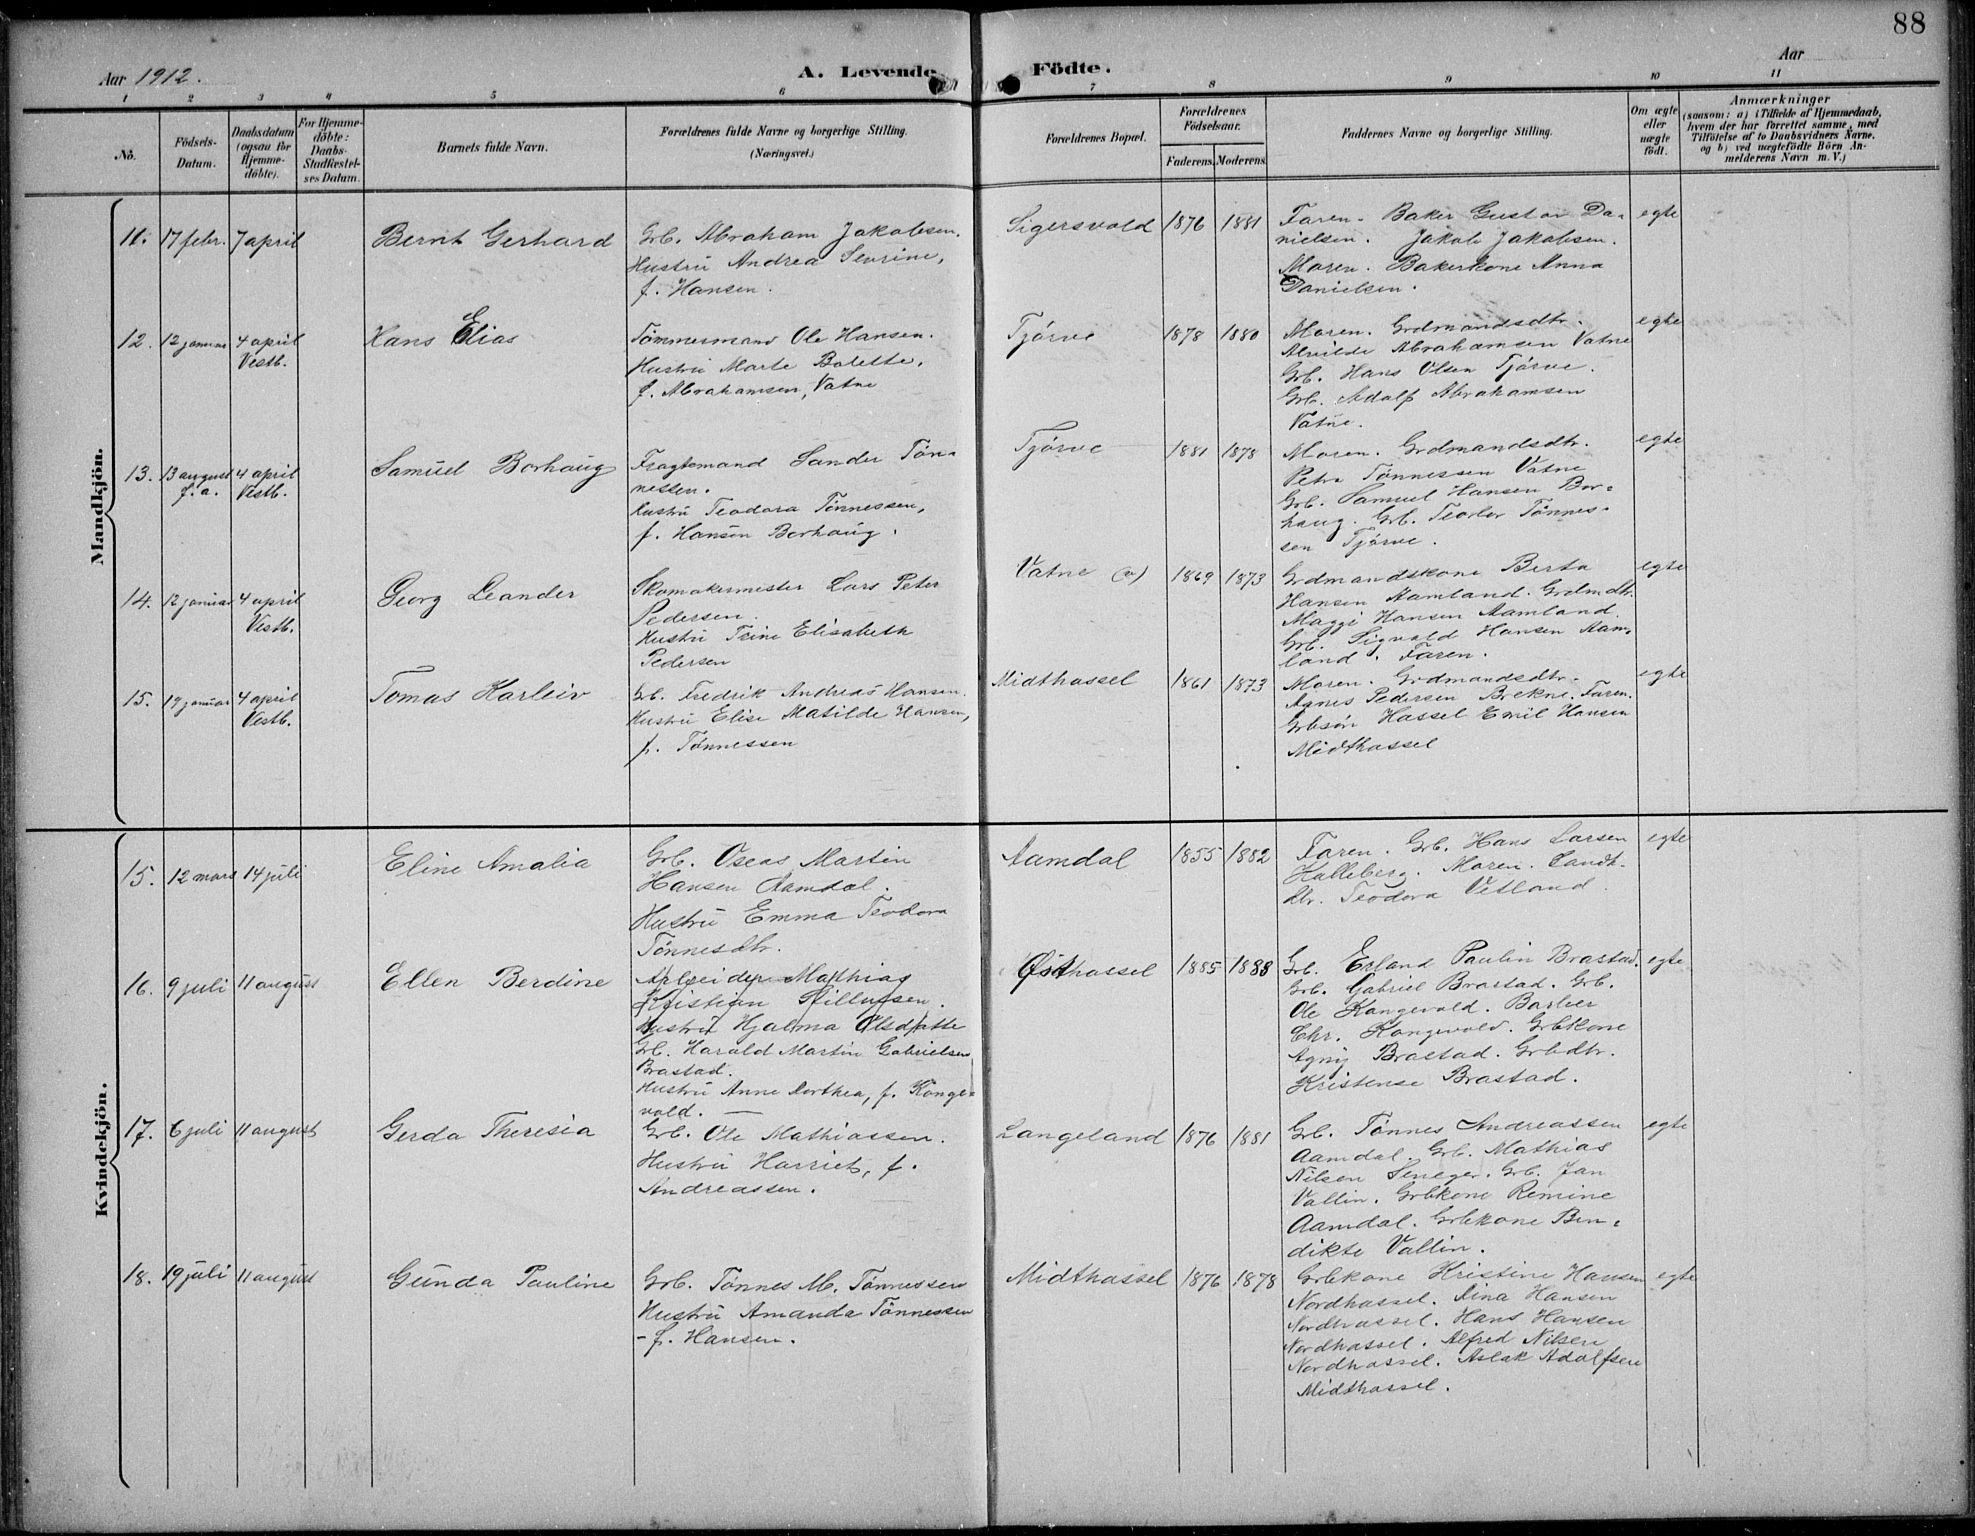 88
Aar 1912.
A. Levende Födte.
Aar
1 2 3 4 5 6 7 8 9 10 11
No.
Födsels-Datum.
Daabsdatum (ogsaa for Hjemme-döbte).
For Hjemme-döbte: Daabs-Stadfæstel-ses Datum.
Barnets fulde Navn.
Forældrenes fulde Navne og borgerlige Stilling. (Næringsvei.)
Forældrenes Bopæl.
Forældrenes Födselsaar.
Faderens. Moderens.
Faddernes Navne og borgerlige Stilling.
Om ægte eller uægte födt.
Anmærkninger
(saasom: a) i Tilfælde af Hjemmedaab,
hvem der har forrettet samme, med
Tilföielse af to Daabsvidners Navne.
og b) ved uægtefödte Börn An-
melderens Navn m. V.)
Mandkjön.
11. 17 febr. 7 april
Bernt Gerhard
Grb. Abraham Jakobsen.
Hustru Andrea Sevrine,
f. Hansen.
Sigersvold 1876 1881
Faren. Baker Gustav Da-
nielsen. Jakob Jakobsen.
Moren. Bakerkone Anna
Danielsen.
egte
12. 12 januar 4 april
Vestb.
Hans Elias
Tømmermand Ole Hansen.
Hustru Marte Bolette,
f. Abrahamsen, Vatne
Tjørve 1878 1880
Moren. Grdmandsdtr.
Alvilde Abrahamsen Vatne
Grb. Hans Olsen Tjørve.
Grb. Adolf Abrahamsen
Vatne.
egte
13. 13 august 4 april
f. a. Vestb.
Samuel Borhaug
Fragtemand Sander Tøn-
nessen.
Hustru Teodora Tønnessen,
f. Hansen Borhaug.
Tjørve 1881 1878
Moren. Grdmandsdtr.
Petra Tønnessen Vatne
Grb. Samuel Hansen Bor-
haug. Grb. Teorlov Tønnes-
sen Tjørve.
egte
14. 12 januar 4 april
Vestb.
Georg Leander
Skomakermester Lars Peter
Pedersen.
Hustru Trine Elisabeth
Pedersen
Vatne (v) 1869 1873
Grdmandskone Berta
Hansen Aamland. Grdmdtr.
Maggi Hansen Aamland.
Grb. Sigvald Hansen Aam-
land. Faren.
egte
15. 19 januar 4 april
Vestb.
Tomas Karleiv
Grb. Fredrik Andreas Hansen.
Hustru Elise Matilde Hansen,
f. Tønnessen
Midthassel 1861 1873
Moren. Grdmandsdtr.
Agnes Pedersen Brekne. Faren.
Grbsøn Hassel Emil Hansen
Midthassel
egte
Kvindekjön.
15. 12 mars 14 juli
Eline Amalia
Grb. Oseas Martin
Hansen Aamdal.
Hustru Emma Teodora
Tønnesdtr.
Aamdal 1855 1882
Faren. Grb. Hans Larsen
Halleberg. Moren. Landh.
dtr. Teodora Vetland.
egte
16. 9 juli 11 august
Ellen Berdine
Arbeider Mathias
Kristian
Hustru Hjalma Olsdatte
Grb. Harald Martin Gabrielsen
Brastad.
Hustru Anne Dorthea, f. Konge-
vold. —
Østhassel 1885 1888
Grb. Erland Paulin Brastad.
Grb. Gabriel Brastad. Grb.
Ole Kongevold. Barber
Chr. Kongevold. Grbkone
Agny Brastad. Grbdtr.
Kristense Brastad.
egte
17. 6 juli 11 august
Gerda Theresia
Grb. Ole Mathiassen.
Hustru Harriet, f.
Andreassen.
Langeland 1876 1881
Grb. Tønnes Andreassen
Aamdal. Grb. Mathias
Nilsen Seneger. Grb. Jan
Vallin. Grbkone Remine
Aamdal. Grbkone Ben-
dikte Vallin.
egte
18. 19 juli 11 august
Gunda Pauline
Grb. Tønnes M. Tønnessen
Hustru Amanda Tønnessen
- f. Hansen.
Midthassel 1876 1878
Grbkone Kristine Hansen
Nordhassel. Dina Hansen
Nordhassel. Hans Hansen
Nordhassel. Alfred Nilsen
Nordhassel. Aslak Adolfsen
Midthassel.
egte